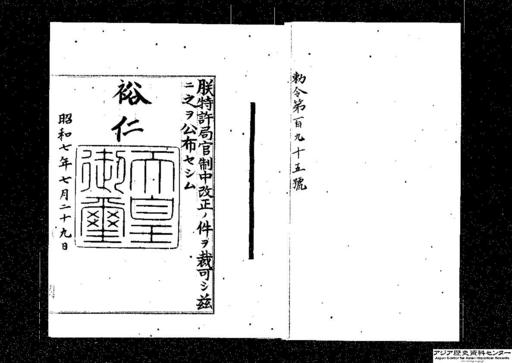 朕特許局官制中改正ノ件ヲ裁可シ茲
ニ之ヲ公布セシム
裕仁
天皇
御璽
昭和七年七月二十九日
勅令第百九十五號
アジア歴史資料センター
Japan Center for Asian Historical Records